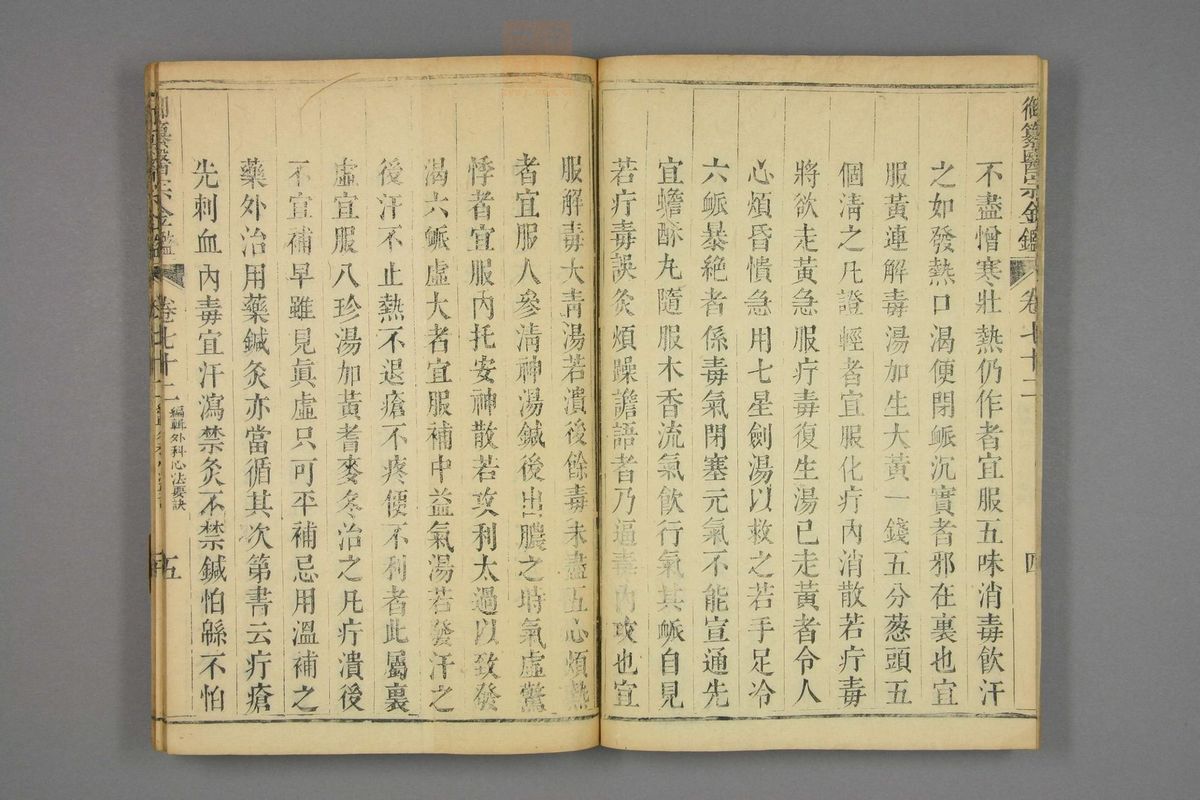 御纂醫宗金鑑 卷七十二 四
不盡憎寒壯熱仍作者宜服五味消毒飲汗
之如發熱口渴便閉脈沉實者邪在裏也宜
服黃連解毒湯加生大黃一錢五分葱頭五
個淸之凡證輕者宜服化疔內消散若疔毒
將欲走黃急服疔毒復生湯已走黃者令人
心煩昏憒急用七星劍湯以救之若手足冷
六脈暴絶者係毒氣閉塞元氣不能宣通先
宜蟾酥丸隨服木香流氣飲行氣其脈自見
若疔毒誤灸煩躁譫語者乃逼毒內攻也宜
服解毒大靑湯若潰後餘毒未盡五心煩熱
者宜服人參淸神湯鍼後出膿之時氣虛驚
悸者宜服內托安神散若攻利太過以致發
渴六脈虛大者宜服補中益氣湯若發汗之
後汗不止熱不退瘡不疼便不利者此屬裏
虛宜服八珍湯加黃耆麥冬治之凡疔潰後
不宜補早雖見眞虛只可平補忌用溫補之
藥外治用藥鍼灸亦當循其次第書云疔瘡
先刺血內毒宜汗瀉禁灸不禁鍼怕緜不怕
御纂醫宗金鑑 卷七十二 編輯外科心法要訣 五